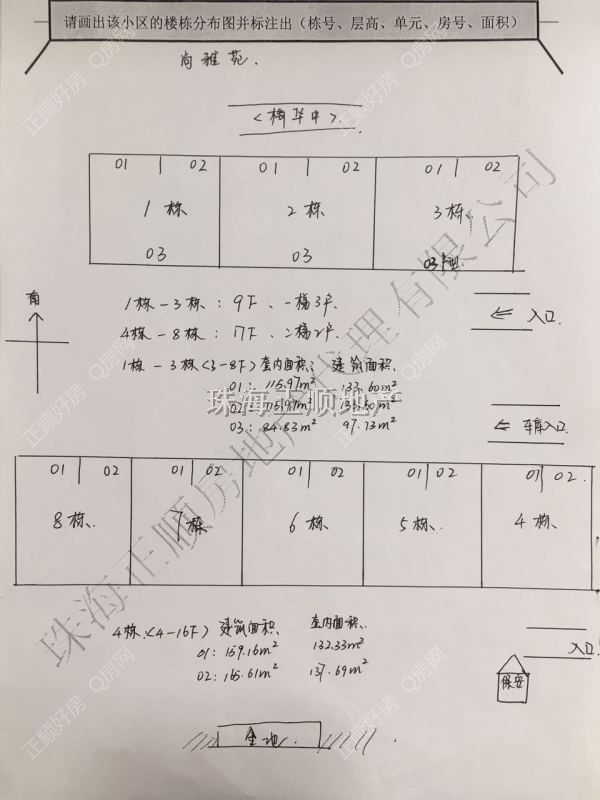 请画出该小区的楼栋分布图并标注出（栋号、层高、单元、房号、面积）
尚雅苑.
01 02 01 02 01 02
1栋 2栋 3栋
03 03 03户型
南
1栋-3栋：9F、一梯3户.
4栋-8栋：17F、二梯2户.
入口
1栋-3栋<3-8F>套内面积： 建筑面积.
01：115.97m² 133.60m²
02：115.97m² 133.60m²
03：84.83m² 97.73m²
车库入口
01 02 01 02 01 02 01 02 01 02
8栋 7栋 6栋 5栋 4栋
4栋<4-16F> 建筑面积 套内面积
01：159.16m² 132.33m²
02：165.61m² 137.69m²
入口
保安
珠海正顺地产
珠海正顺房地产代理有限公司
正顺好房 Q房网